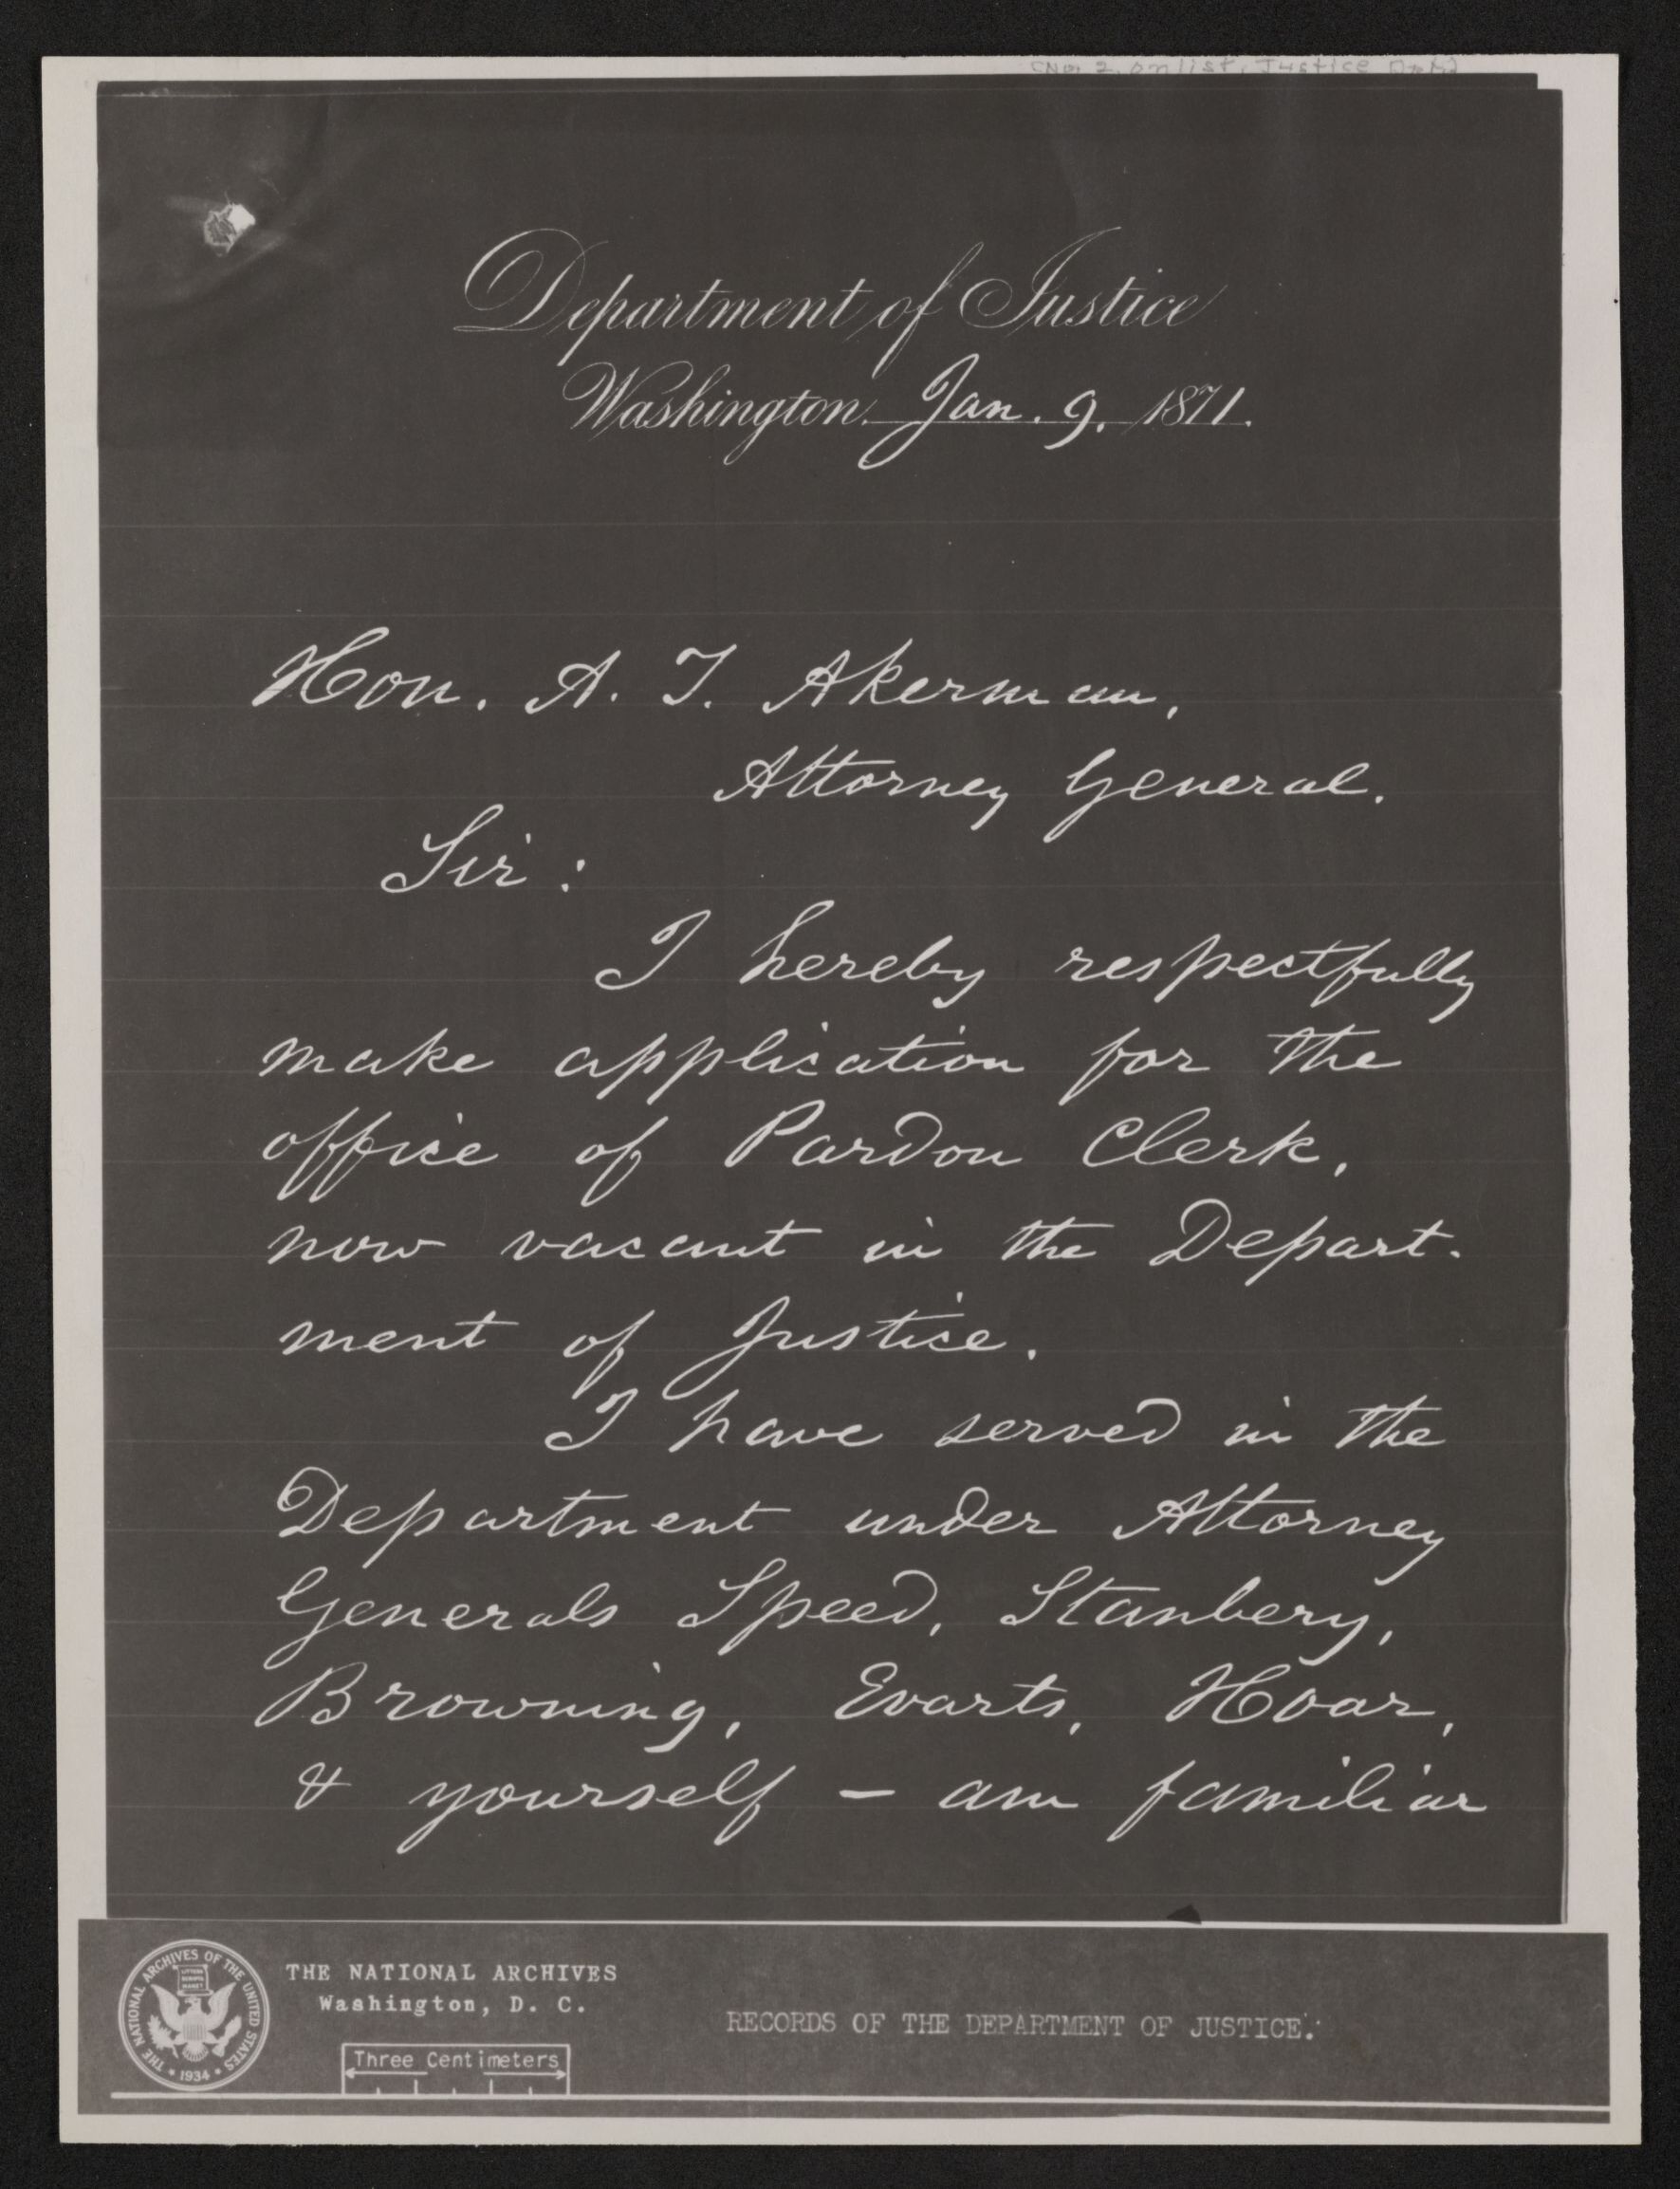 (No. 2 on list, Justice Dept.)
Department of Justice
Washington, Jan. 9. 1871.
Hon. A. T. Akerman,
Attorney General.
Sir:
I hereby respectfully
make application for the
office of Pardon Clerk,
now vacant in the Depart-
ment of Justice.
I have served in the
Department under Attorney
Generals Speed, Stanbery,
Browning, Evarts, Hoar,
& yourself — am familiar
THE NATIONAL ARCHIVES OF THE UNITED STATES
LITTERA
SCRIPTA
MANET
1934
THE NATIONAL ARCHIVES
Washington, D. C.
Three Centimeters
RECORDS OF THE DEPARTMENT OF JUSTICE.